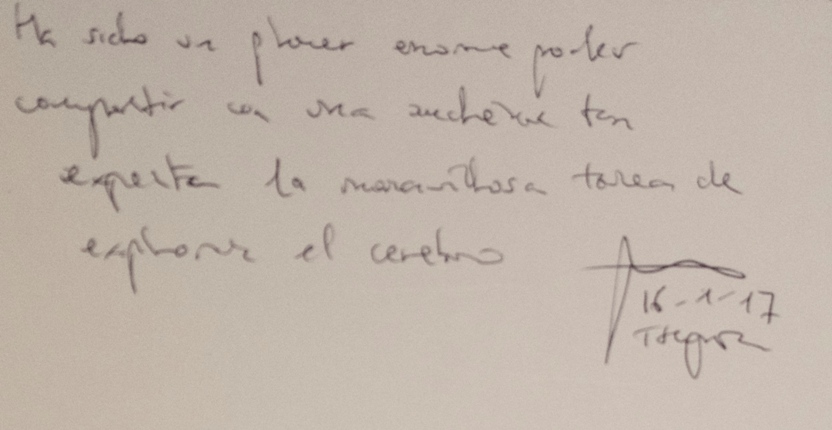 Ha sido un placer enorme poder
compartir con una audiencia tan
experta la maravillosa tarea de
explorar el cerebro
16-1-17